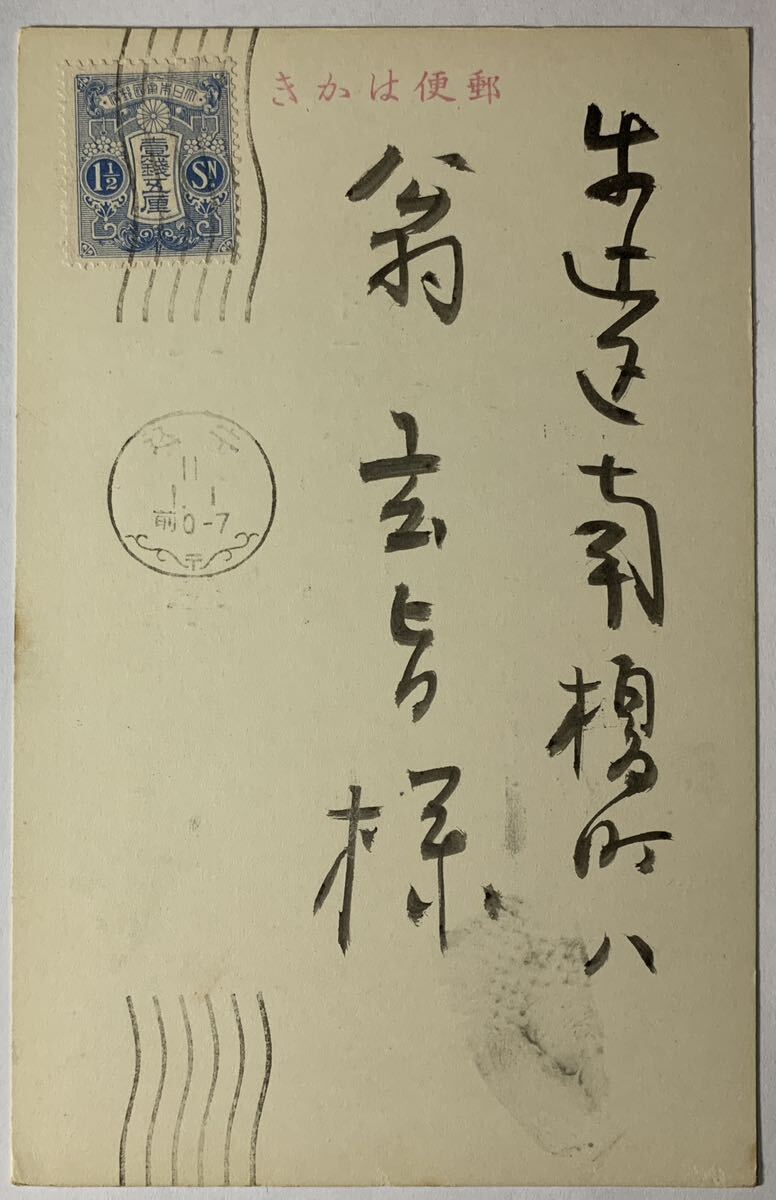 郵便はかき
牛込区南榎町八
翁玄旨様
大日本帝國郵便
壹錢五厘
1½
SN.
11
1.1
前0-7